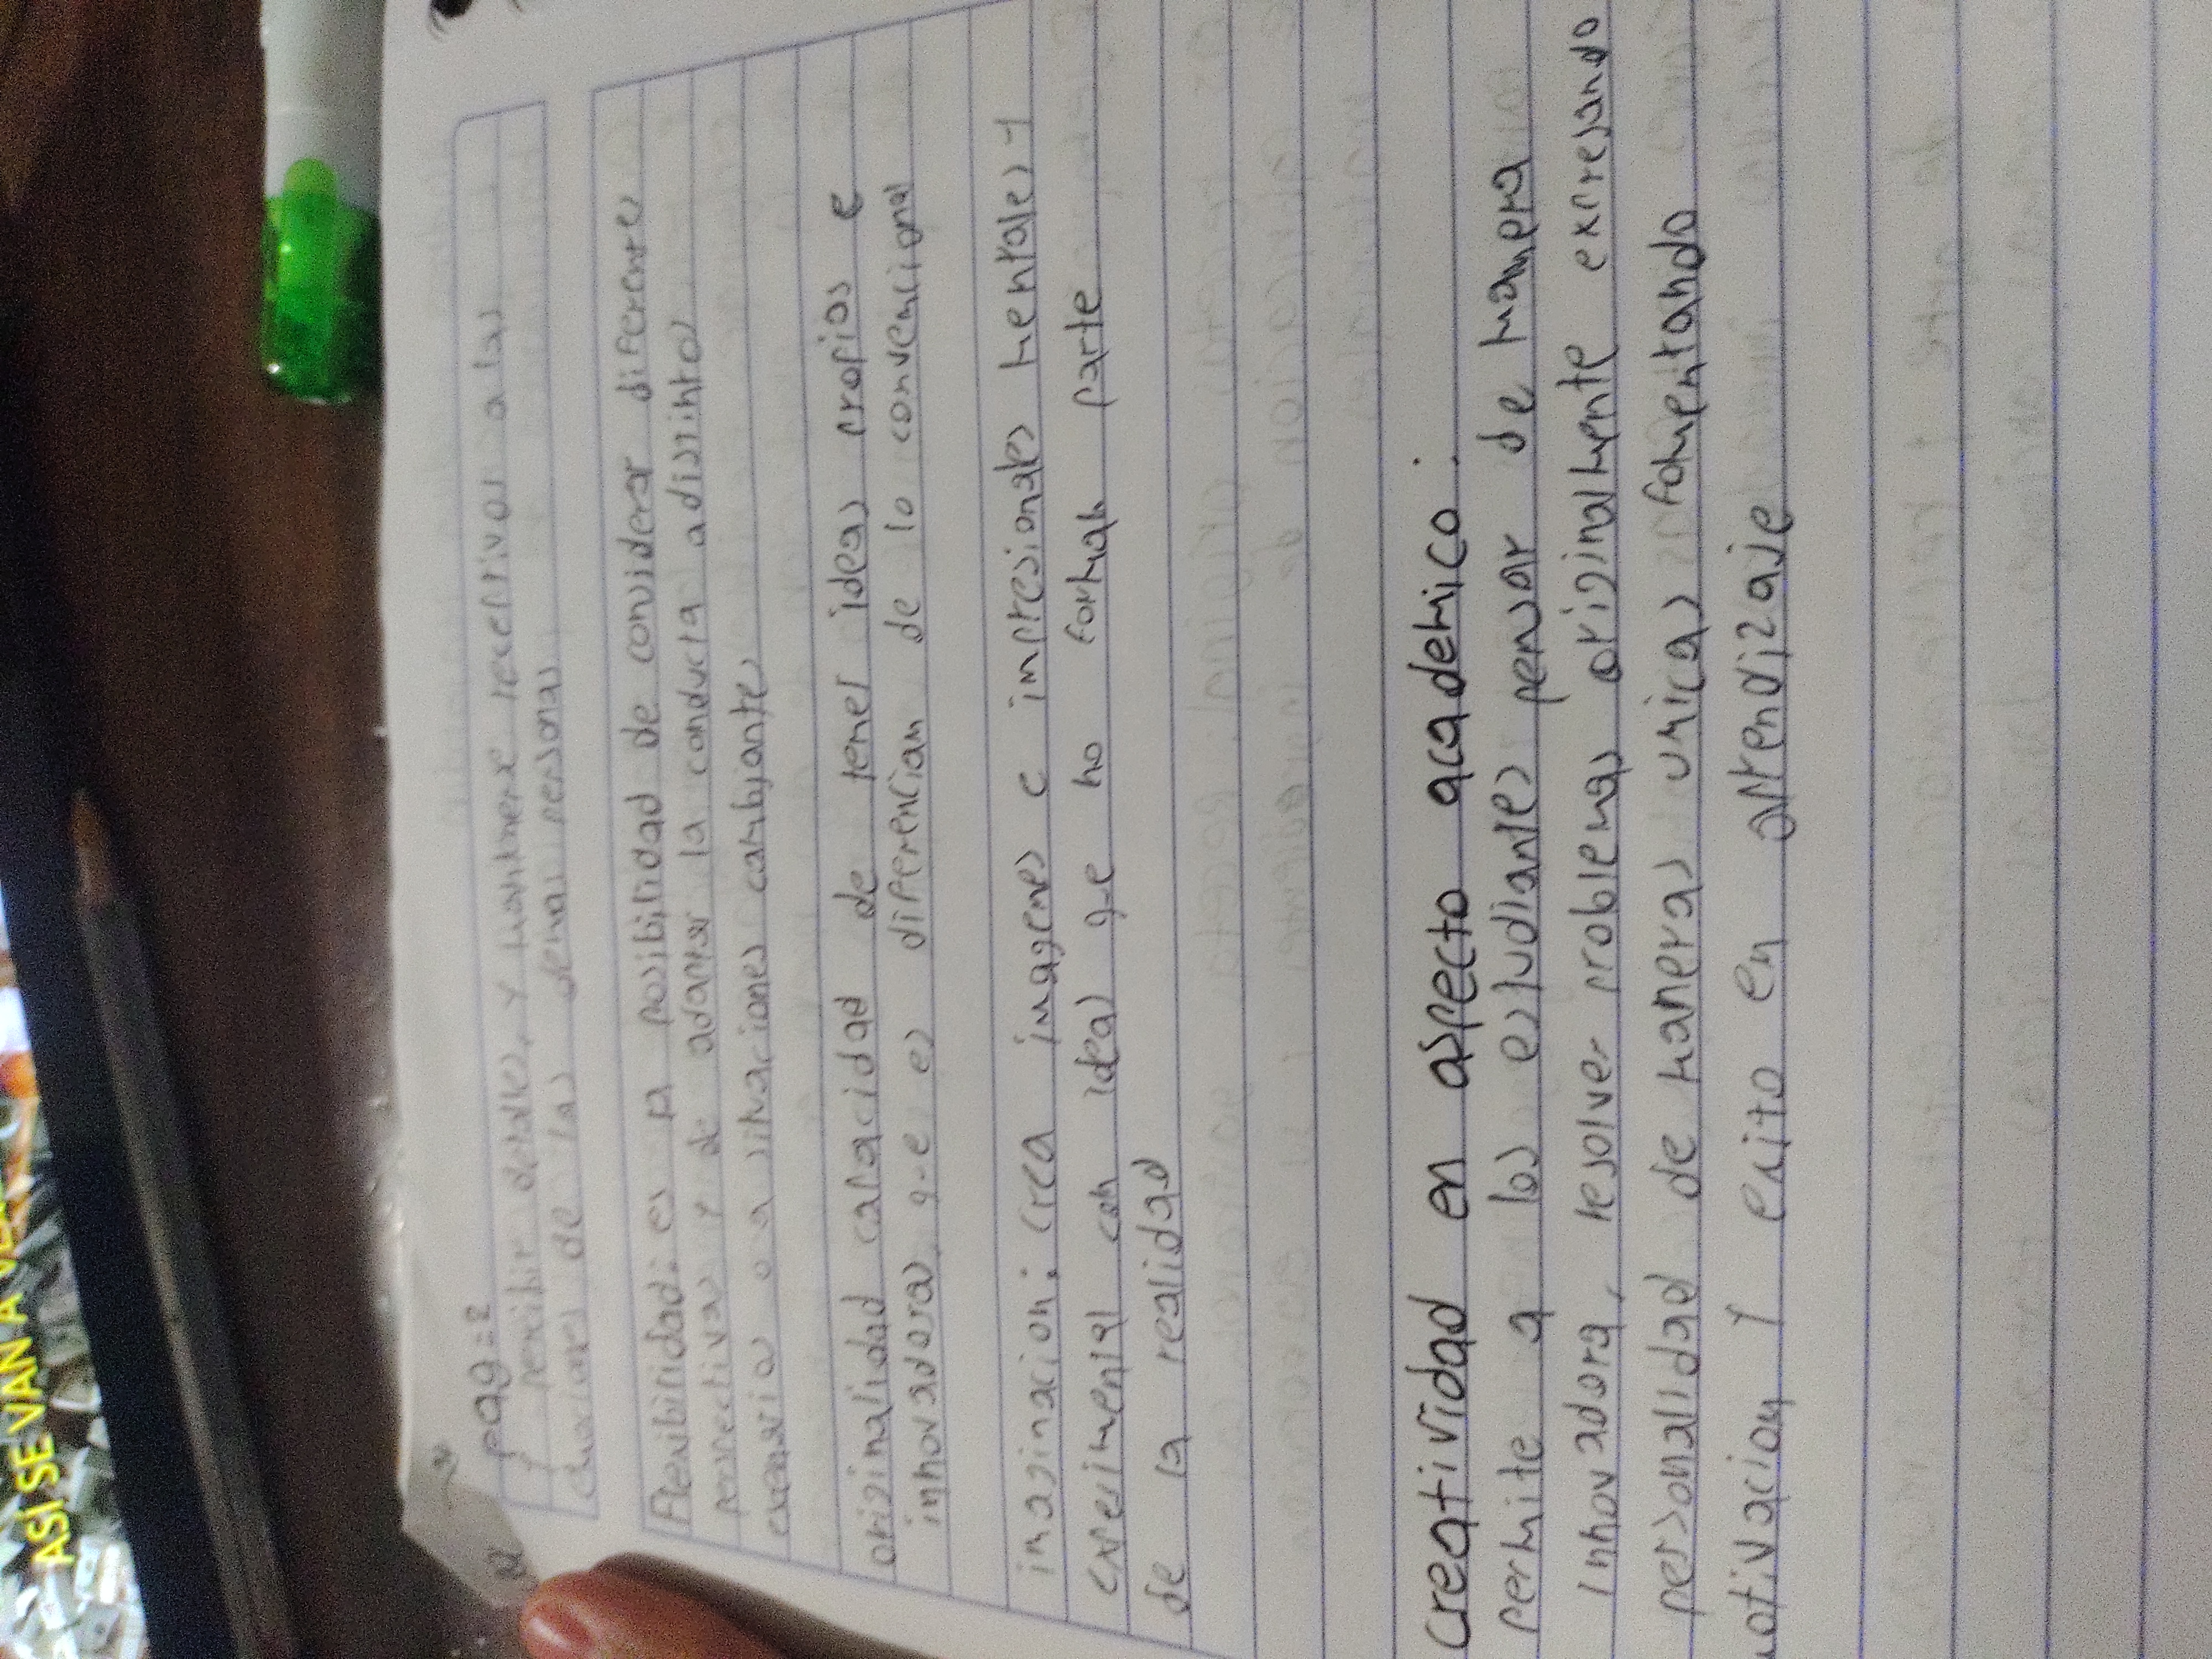 ASI SE VAN A VE
pag=2
y percibir detalles, y mantenerse receptivos a las
emociones de las demas personas
Flexibilidad: es la posibilidad de considerar diferentes
perspectivas y de adaptar la conducta a distintos
escenarios o a situaciones cambiantes
originalidad capacidad de tener ideas propias e
innovadoras que es diferencian de lo convencional
imaginacion: crea imagenes e impresionales mentales y
experimental con ideas que no forman parte
de la realidad
creatividad en aspecto academico.
permite a los estudiantes pensar de manera
innovadora, resolver problemas originalmente expresando
personalidad de maneras unicas fomentando
motivacion y exito en aprendizaje